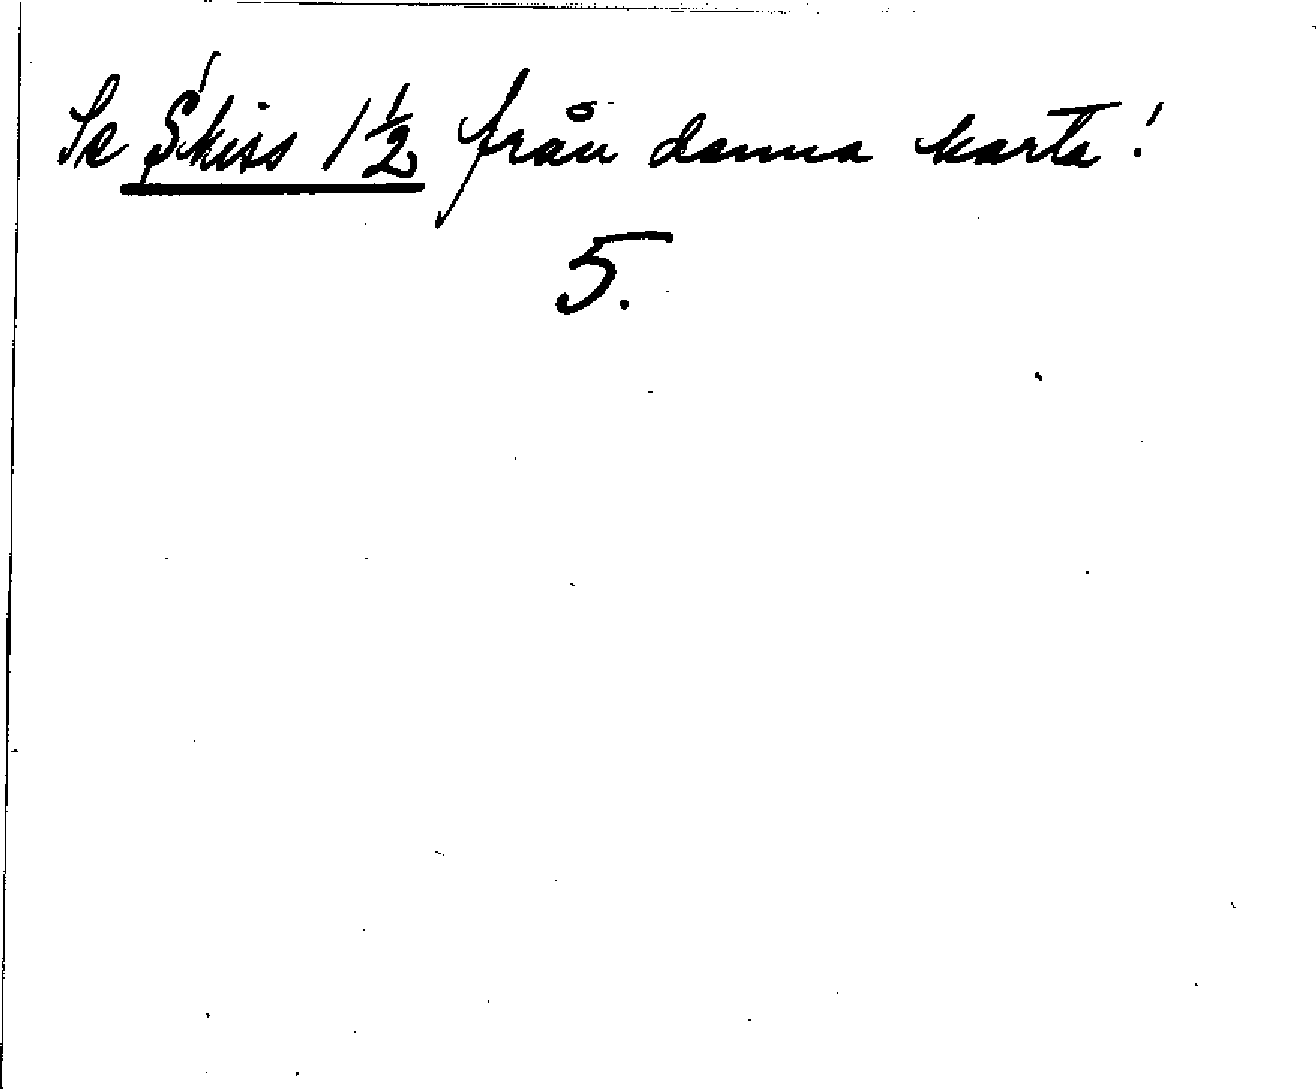 Se Skiss 1½ från denna karta!
5.